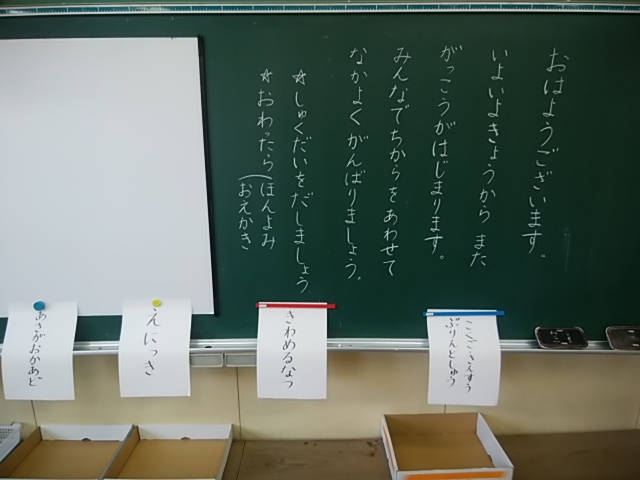 おはようございます。
いよいよきょうから また
がっこうがはじまります。
みんなでちからをあわせて
なかよくがんばりましょう。
☆しゅくだいをだしましょう
☆おわったら(ほんよみ
おえかき
こくご・さんすう
ぷりんとしゅう
きわめるなつ
えにっき
あさがおかあど